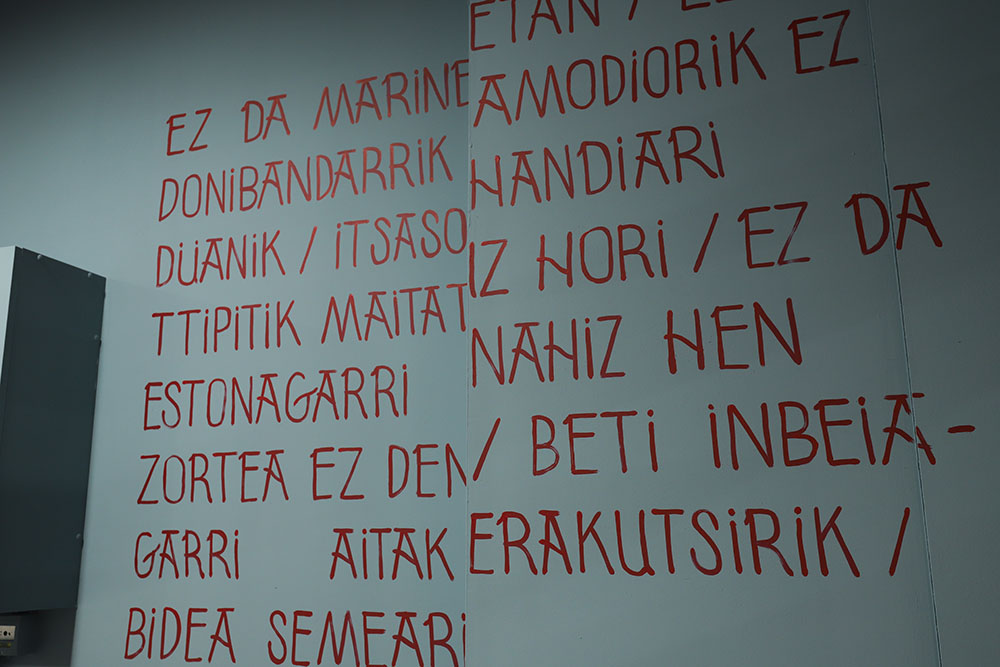 EZ DA MARINE ETAN /
DONIBANDARRIK AMODIORIK EZ
DÜANIK / ITSASO HANDIARI
TTIPITIK MAITAT IZ HORI / EZ DA
ESTONAGARRI NAHIZ HEN
ZORTEA EZ DEN / BETI INBEIA-
GARRI AITAK ERAKUTSIRIK /
BIDEA SEMEARI